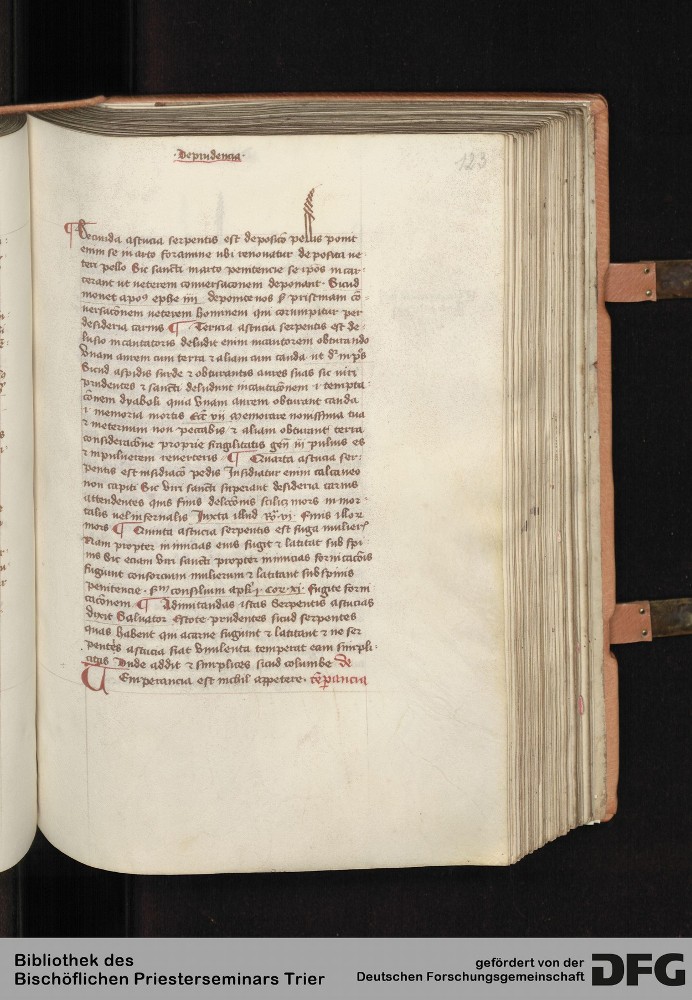 ·De prudencia·
123
Secunda astucia serpentis est deposicō pellis ponit
enim se in arto foramine ubi renouatur deposita ue
teri pelle Sic sancti in arto penitencie se ip̄os incar
cerant ut ueterem conuersaconem deponant Sicud
monet apo9 ephe iiij deponite uos s pristinam cō
uersacōnem veterem hominem qui corrumpitur per
desideria carnis ¶ Tercia astucia serpentis est de
lusio incantatoris deludit enim incantorem obturando
Vnam aurem cum terra & aliam cum cauda ut d'r in p̄s
Sicud aspidis surde & obturantis aures suas sic uiri
prudentes & sancti deludunt incantacōnem i tempta
cōnem dyaboli quia Vnam aurem obturant cauda
i memoria mortis Ecc vij Memorare nouissima tua
& ineternum non peccabis & aliam obturant terra
consideracōne proprie fragilitatis gen iij puluis es
& in puluerem reuerteris ¶ Quarta astucia ser
pentis est insidiacō pedis Insidiatur enim calcaneo
non capiti Sic viri sancti superant desideria carnis
attendentes quis finis delcōnis scilicz mors in mor
talis uel infernalis Juxta illud Ro vi Finis illor
mors ¶ Quinta astucia serpentis est fuga mulier
Nam propter inimicias eius fugit & latitat sub spi
nis Sic eciam viri sancti propter inimicias fornicacōis
fugiunt consorcium mulierum & latitant sub spinis
penitencie · sm consilium apli j · cor · xj · fugite forni
cacōnem ¶ Ad imitandas istas Serpentis astucias
dixit Saluator Estote prudentes sicud serpentes
quas habent qui a carne fugiunt & latitant & ne ser
pentis astucia fiat Virulenta temperat eam simpli
citas Vnde addit & simplices sicud columbe de
Temperancia est nichil appetere · tēperancia
Bibliothek des
Bischöflichen Priesterseminars Trier
gefördert von der
Deutschen Forschungsgemeinschaft
DFG